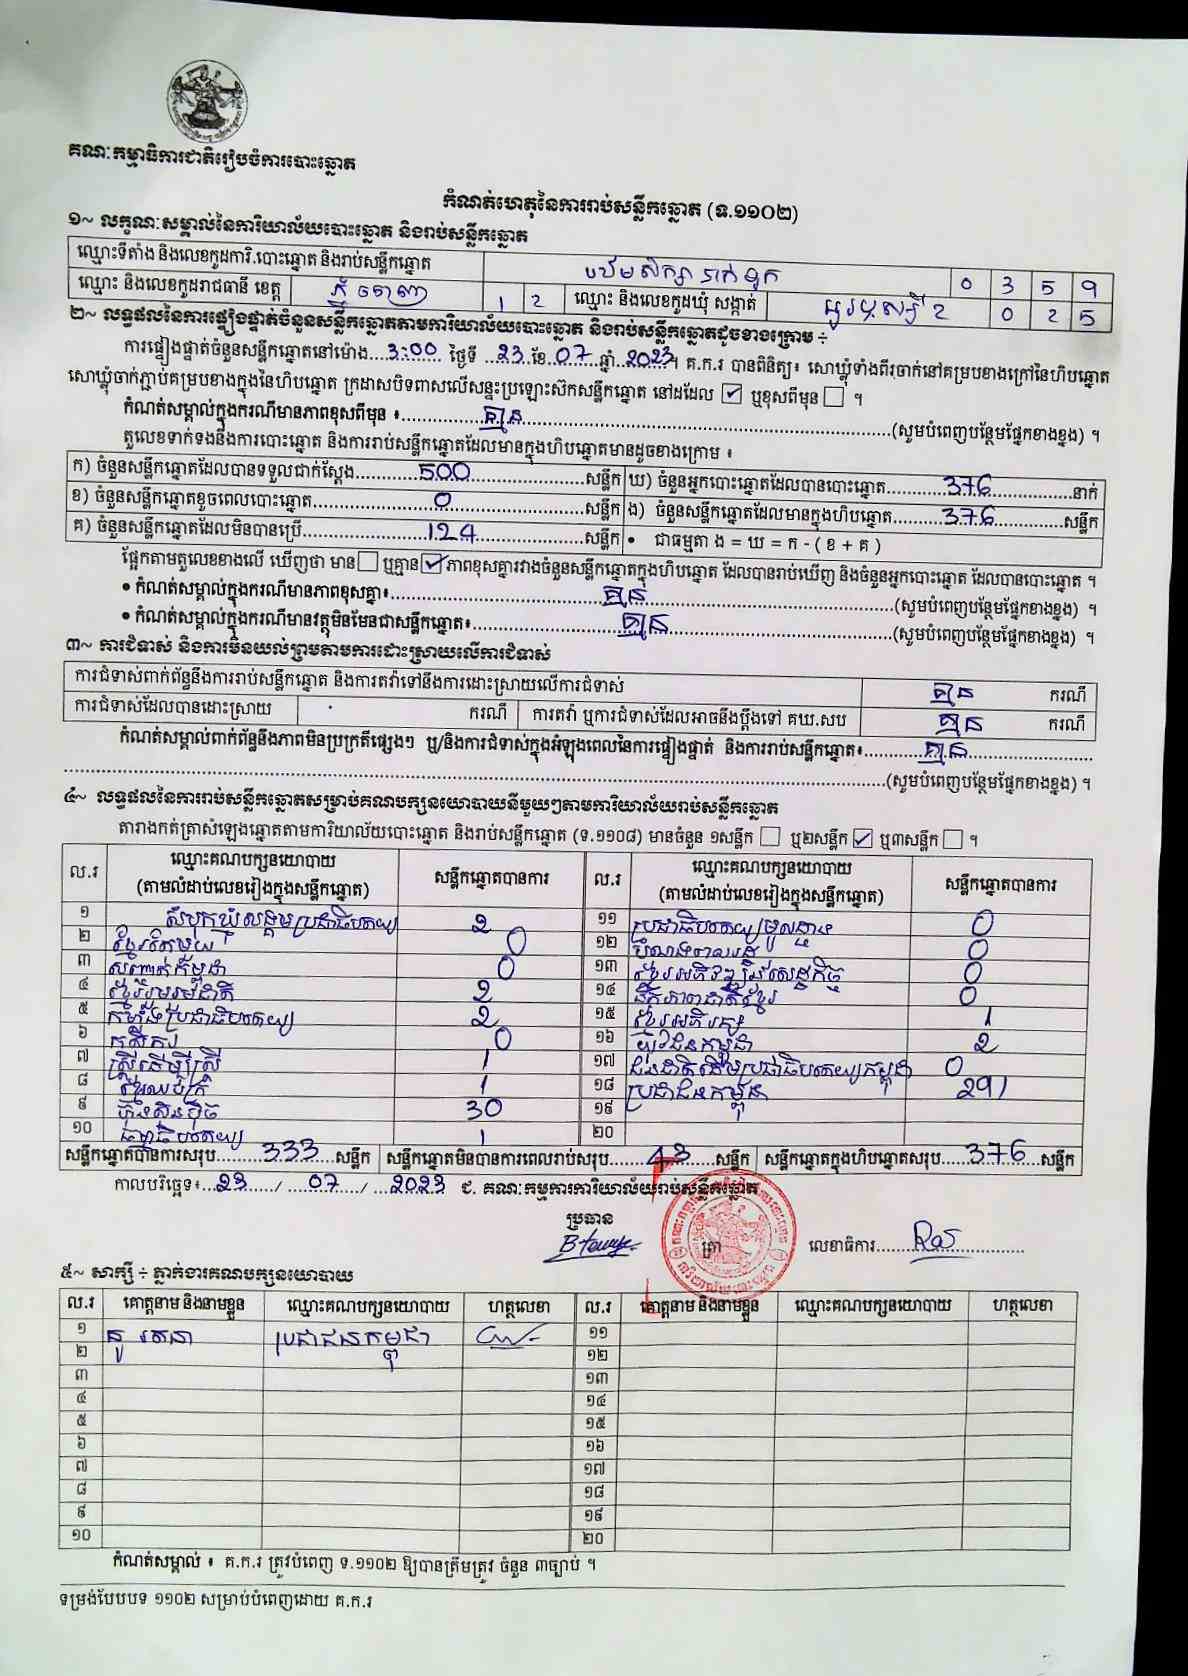 គណៈកម្មាធិការជាតិរៀបចំការបោះឆ្នោត
កំណត់ហេតុនៃការរាប់សន្លឹកឆ្នោត (ទ.១១០២)
១~ លក្ខណៈសម្គាល់នៃការិយាល័យបោះឆ្នោត និងរាប់សន្លឹកឆ្នោត
ឈ្មោះទីតាំង និងលេខកូដការិ.បោះឆ្នោត និងរាប់សន្លឹកឆ្នោត បឋមសិក្សា ទក់ទូក 0 3 5 9
ឈ្មោះ និងលេខកូដរាជធានី ខេត្ត ភ្នំពេញ 1 2 ឈ្មោះ និងលេខកូដឃុំ សង្កាត់ 0 2 5
២~ លទ្ធផលនៃការផ្ទៀងផ្ទាត់ចំនួនសន្លឹកឆ្នោតតាមការិយាល័យបោះឆ្នោត និងរាប់សន្លឹកឆ្នោតដូចខាងក្រោម ÷
ការផ្ទៀងផ្ទាត់ចំនួនសន្លឹកឆ្នោតនៅម៉ោង...3:00...... ថ្ងៃទី ...23...ខែ.07.....ឆ្នាំ..2023។ គ.ក.រ បានពិនិត្យ៖ សោឃ្លុំទាំងពីរចាក់នៅគម្របខាងក្រៅនៃហិបឆ្នោត
សោឃ្លុំចាក់ភ្ជាប់គម្របខាងក្នុងនៃហិបឆ្នោត ក្រដាសបិទពាសលើសន្ទះប្រឡោះស៊កសន្លឹកឆ្នោត នៅដដែល ☑ ឬខុសពីមុន ☐ ។
កំណត់សម្គាល់ក្នុងករណីមានភាពខុសពីមុន ៖........គ្មាន........(សូមបំពេញបន្ថែមផ្នែកខាងខ្នង) ។
តួលេខទាក់ទងនឹងការបោះឆ្នោត និងការរាប់សន្លឹកឆ្នោតដែលមានក្នុងហិបឆ្នោតមានដូចខាងក្រោម ៖
ក) ចំនួនសន្លឹកឆ្នោតដែលបានទទួលជាក់ស្តែង........500........សន្លឹក ឃ) ចំនួនអ្នកបោះឆ្នោតដែលបានបោះឆ្នោត........376........នាក់
ខ) ចំនួនសន្លឹកឆ្នោតខូចពេលបោះឆ្នោត........0........សន្លឹក ង) ចំនួនសន្លឹកឆ្នោតដែលមានក្នុងហិបឆ្នោត........376........សន្លឹក
គ) ចំនួនសន្លឹកឆ្នោតដែលមិនបានប្រើ........124........សន្លឹក • ជាធម្មតា ង = ឃ = ក - ( ខ + គ )
ផ្អែកតាមតួលេខខាងលើ ឃើញថា មាន ☐ ឬគ្មាន ☑ ភាពខុសគ្នារវាងចំនួនសន្លឹកឆ្នោតក្នុងហិបឆ្នោត ដែលបានរាប់ឃើញ និងចំនួនអ្នកបោះឆ្នោត ដែលបានបោះឆ្នោត ។
• កំណត់សម្គាល់ក្នុងករណីមានភាពខុសគ្នា៖........គ្មាន........(សូមបំពេញបន្ថែមផ្នែកខាងខ្នង) ។
• កំណត់សម្គាល់ក្នុងករណីមានវត្ថុមិនមែនជាសន្លឹកឆ្នោត៖........គ្មាន........(សូមបំពេញបន្ថែមផ្នែកខាងខ្នង) ។
៣~ ការជំទាស់ និងការមិនយល់ព្រមតាមការដោះស្រាយលើការជំទាស់
ការជំទាស់ពាក់ព័ន្ធនឹងការរាប់សន្លឹកឆ្នោត និងការតវ៉ាទៅនឹងការដោះស្រាយលើការជំទាស់ គ្មាន ករណី
ការជំទាស់ដែលបានដោះស្រាយ ករណី ការតវ៉ា ឬការជំទាស់ដែលអាចនឹងប្តឹងទៅ គឃ.សប គ្មាន ករណី
កំណត់សម្គាល់ពាក់ព័ន្ធនឹងភាពមិនប្រក្រតីផ្សេងៗ ឬ/និងការជំទាស់ក្នុងអំឡុងពេលនៃការផ្ទៀងផ្ទាត់ និងការរាប់សន្លឹកឆ្នោត៖........គ្មាន........
........(សូមបំពេញបន្ថែមផ្នែកខាងខ្នង) ។
៤~ លទ្ធផលនៃការរាប់សន្លឹកឆ្នោតសម្រាប់គណបក្សនយោបាយនីមួយៗតាមការិយាល័យរាប់សន្លឹកឆ្នោត
តារាងកត់ត្រាសំឡេងឆ្នោតតាមការិយាល័យបោះឆ្នោត និងរាប់សន្លឹកឆ្នោត (ទ.១១០៨) មានចំនួន ១សន្លឹក ☐ ឬ២សន្លឹក ☑ ឬ៣សន្លឹក ☐ ។
ល.រ ឈ្មោះគណបក្សនយោបាយ (តាមលំដាប់លេខរៀងក្នុងសន្លឹកឆ្នោត) សន្លឹកឆ្នោតបានការ ល.រ ឈ្មោះគណបក្សនយោបាយ (តាមលំដាប់លេខរៀងក្នុងសន្លឹកឆ្នោត) សន្លឹកឆ្នោតបានការ
១ សំបុកឃ្មុំសង្គមប្រជាធិបតេយ្យ 2 ១១ ប្រជាធិបតេយ្យមូលដ្ឋាន 0
២ ខ្មែរតែមួយ 0 ១២ 0
៣ សញ្ជាតិកម្ពុជា 0 ១៣ ខ្មែរអភិវឌ្ឍន៍សេដ្ឋកិច្ច 0
៤ ខ្មែររួបរួមជាតិ 2 ១៤ ឯកភាពជាតិខ្មែរ 0
៥ កម្លាំងប្រជាធិបតេយ្យ 2 ១៥ ខ្មែរអភិរក្ស 1
៦ កសិករ 0 ១៦ យុវជនកម្ពុជា 2
៧ ស្ត្រីដើម្បីស្ត្រី 1 ១៧ ជនជាតិដើមប្រជាធិបតេយ្យកម្ពុជា 0
៨ ខ្មែរឈប់ក្រ 1 ១៨ ប្រជាជនកម្ពុជា 291
៩ ហ៊្វុនស៊ិនប៉ិច 30 ១៩
១០ ធម្មាធិបតេយ្យ 1 ២០
សន្លឹកឆ្នោតបានការសរុប........333........សន្លឹក សន្លឹកឆ្នោតមិនបានការពេលរាប់សរុប........43........សន្លឹក សន្លឹកឆ្នោតក្នុងហិបឆ្នោតសរុប........376........សន្លឹក
កាលបរិច្ឆេទ៖...23...../ ...07...../ ...2023 ជ. គណៈកម្មការការិយាល័យរាប់សន្លឹកឆ្នោត
ប្រធាន
ត្រា
លេខាធិការ
៥~ សាក្សី ÷ ភ្នាក់ងារគណបក្សនយោបាយ
ល.រ គោត្តនាម និងនាមខ្លួន ឈ្មោះគណបក្សនយោបាយ ហត្ថលេខា ល.រ គោត្តនាម និងនាមខ្លួន ឈ្មោះគណបក្សនយោបាយ ហត្ថលេខា
១ នូ រតនា ប្រជាជនកម្ពុជា ១១
២ ១២
៣ ១៣
៤ ១៤
៥ ១៥
៦ ១៦
៧ ១៧
៨ ១៨
៩ ១៩
១០ ២០
កំណត់សម្គាល់ ៖ គ.ក.រ ត្រូវបំពេញ ទ.១១០២ ឱ្យបានត្រឹមត្រូវ ចំនួន ៣ច្បាប់ ។
ទម្រង់បែបបទ ១១០២ សម្រាប់បំពេញដោយ គ.ក.រ